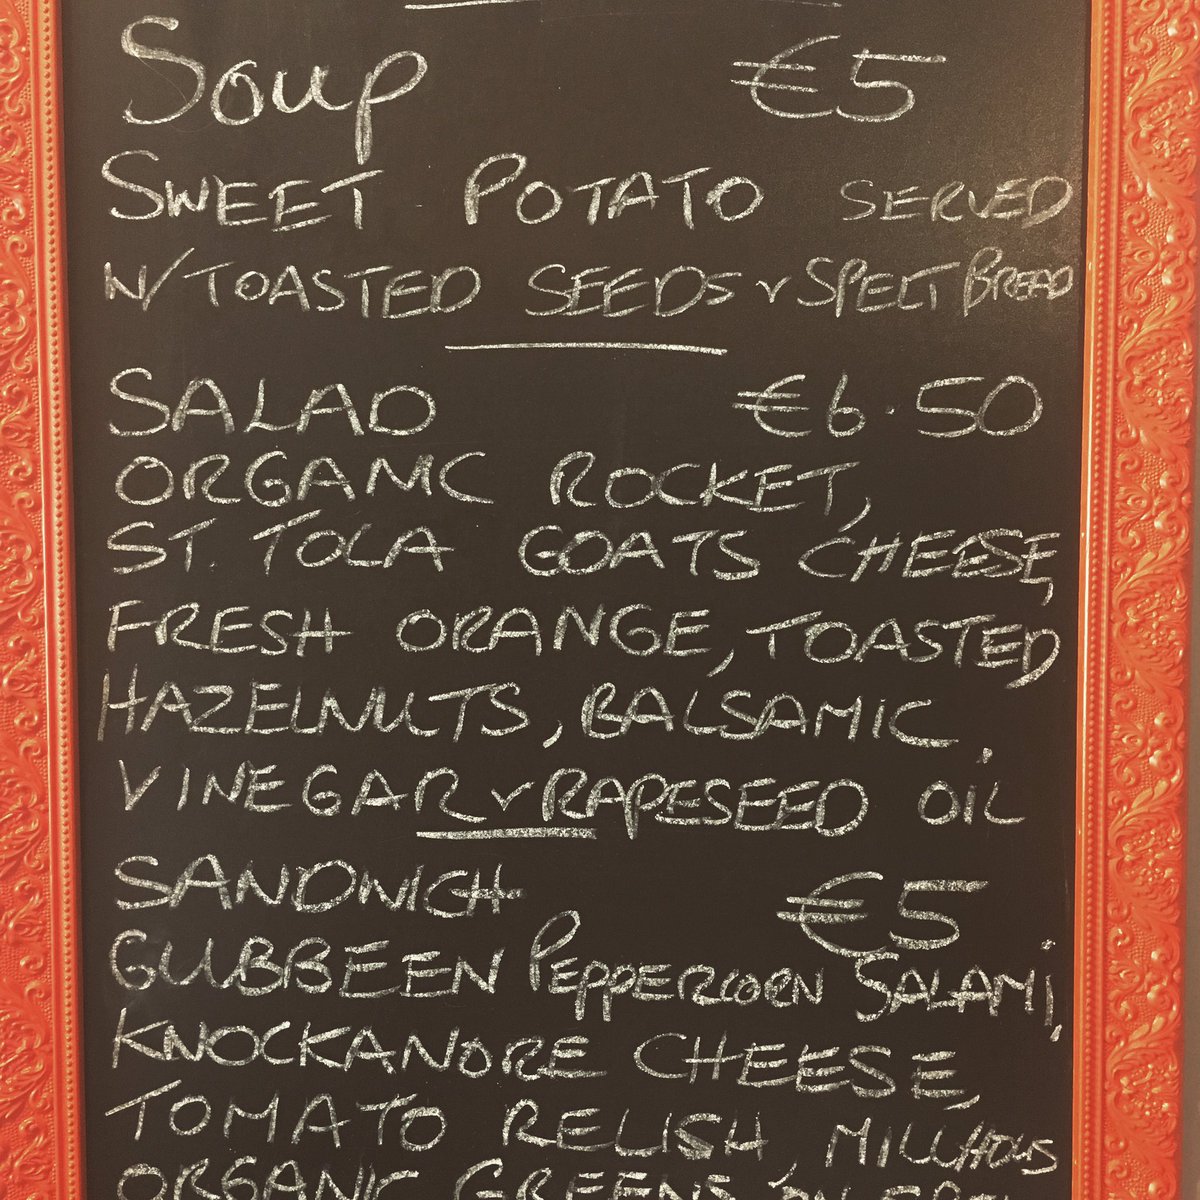 Soup €5
SWEET POTATO SERVED
W/ TOASTED SEEDS & SPELT BREAD
SALAD €6.50
ORGANIC ROCKET,
ST. TOLA GOATS CHEESE,
FRESH ORANGE, TOASTED
HAZELNUTS, BALSAMIC
VINEGAR & RAPESEED OIL
SANDWICH €5
GUBBEEN PEPPERCORN SALAMI,
KNOCKANORE CHEESE,
TOMATO RELISH, MILLHOUS
ORGANIC GREENS